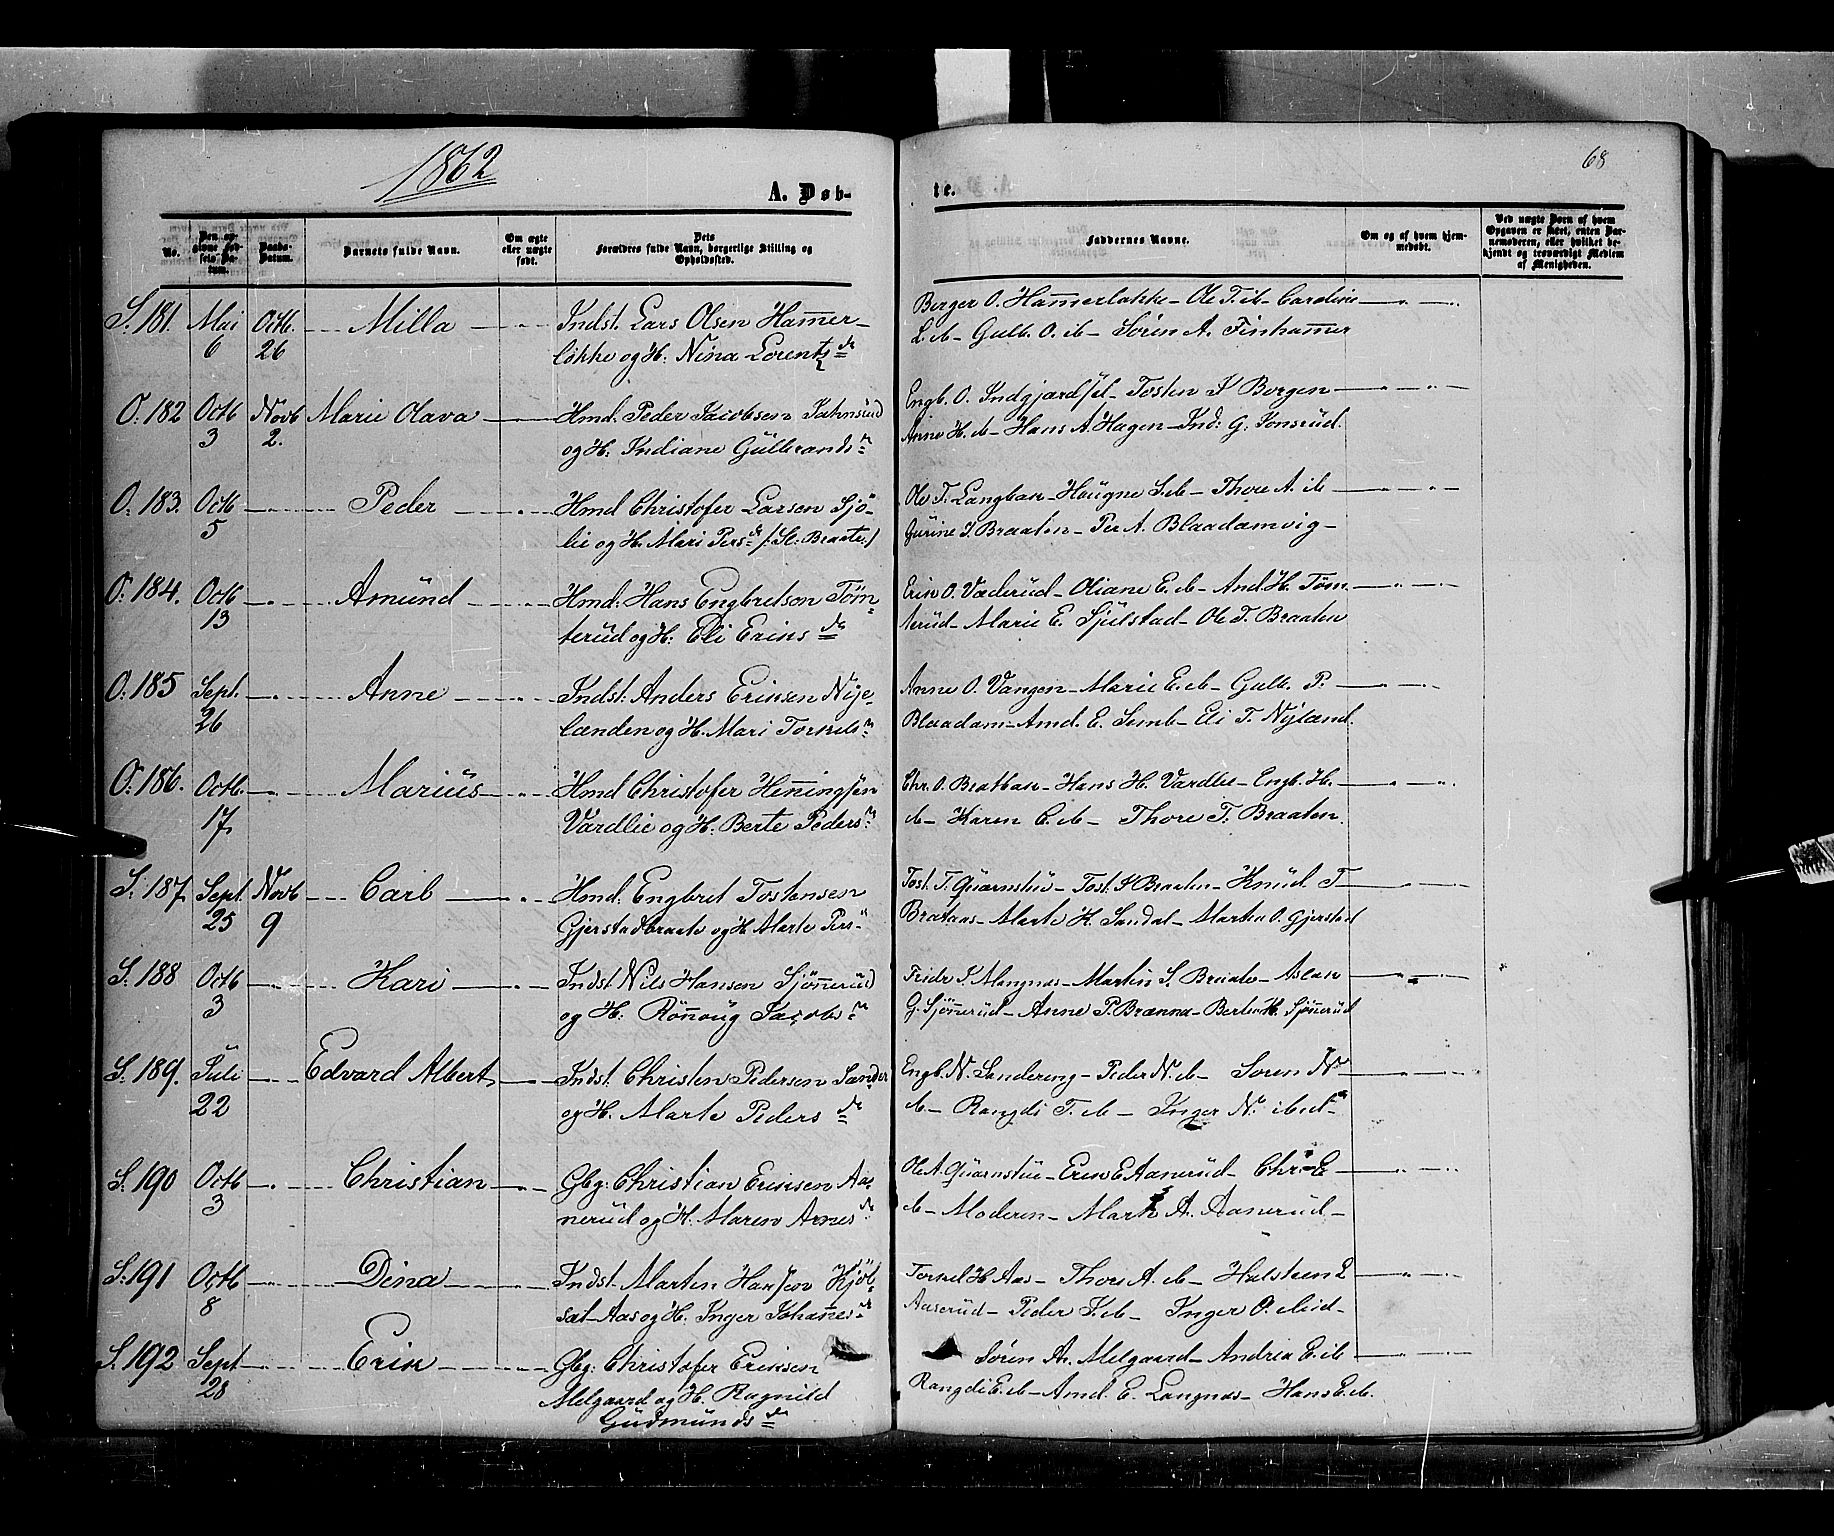 1862
68
A. Døb-
te.
No.
Den op-
givne Fød-
sels Da-
tum.
Daabs-
Datum.
Barnets fulde Navn.
Om ægte
eller uægte
født.
Dets
Forældres fulde Navn, borgerlige Stilling og
Opholdssted.
Faddernes Navne.
Om og af hvem hjem-
medøbt.
Ved uægte Børn af hvem
Opgaven er skeet, enten Bar-
nemoderen, eller hvilket be-
kjendt og troværdigt Medlem
af Menigheden.
S. 181. Mai 6 Octb. 26 Milla
Indst. Lars Olsen Ham̄er-
løkke og H: Nina Lorentsdr
Borger O. Ham̄erløkke - Ole T. ib - Caroline
L. ib - Gulb. O. ib - Sören A. Finham̄er
O. 182 Octb 3 Novb 2. Marie Olava
Hmd. Peder Jacobsen Jahnsrud
og H. Indiane Gulbrandsdr
Engb. O. Indgjardsel - Tosten J Borgen
Anne H. ib - Hans A. Hagen - Ind: G. Jonsrud.
O. 183. Octb 5 Peder
Hmd Christofer Larsen Sjø-
lie og H. Mari Persdr /: Sl: Braate:/
Ole T. Langbak - Haugne S. ib - Thore A. ib
Gurine J. Braaten - Per A. Blaadamvig -
O. 184. Octb 13 Amund
Hmd: Hans Engbretsen Tøm-
terud og H: Eli Eriksdr
Erik O. Vaderud - Oliane E. ib - And. H. Tøm-
terud - Marie E. Sjulstad - Ole T. Braaten
O: 185 Sept. 26 Anne
Indst. Anders Eriksen Nye-
lænden og H. Mari Torkelsdr
Anne O. Vangen - Marie E. ib - Gulb. P.
Blaadam - Amd. E. Semb - Eli T. Nyland.
O. 186. Octb. 17 Marius
Hmd Christofer Hen̄ingsen
Vardlie og H. Berte Pedersdr
Chr. O. Bratbak - Hans H. Vardlie - Engb. H.
ib - Karen C. ib - Thore T. Braaten.
S. 187 Sept. 25 Novb 9 Carl
Hmd. Engbret Tostensen
Gjerstadbraate og H Marte Persdr
Tost. T. Qvarnstue - Tost. J Braaten - Knud T
Brataas - Marte H. Sandal - Martin O. Gjerstad
S. 188 Octb 3 Kari
Indst Nils Hansen Sjøn̄erud
og H: Røn̄oug Jacobsdr
Fridr. J. Mangnæs - Martin S. Braate - Aslak
G. Sjøn̄erud - Anne P. Brænna - Berte H. Sjøn̄erud
S. 189. Juli 22 Edvard Albert
Indst. Christen Pedersen Sander
og H. Marte Pedersdr
Engb. N. Sandereng - Peder N. ib - Soren N
ib - Rangdi T. ib - Inger N. ibid -
S. 190 Octb 3 Christian
Gbg: Christian Eriksen Aa-
nerud og H. Maren Arnesdr
Ole A. Qvarnstue - Erik E Aanerud - Chr. E
ib - Moderen - Mark A. Aanerud -
S. 191 Octb 8 Dina
Indst. Martin Hansen Kjöl-
sat-Aas og H. Inger Johan̄esdr
Torkel H. Aas - Thore A. ib - Halsteen L
Aaserud - Peder K. ib - Inger O. ibid -
S. 192 Sept 28 Erik
Gbg: Christofer Eriksen
Melgaard og H. Ragnild
Gudmundsdr
Søren A. Melgaard - Andrea E. ib
Rangdi E. ib - Amd. E. Langnæs - Hans E. ib.